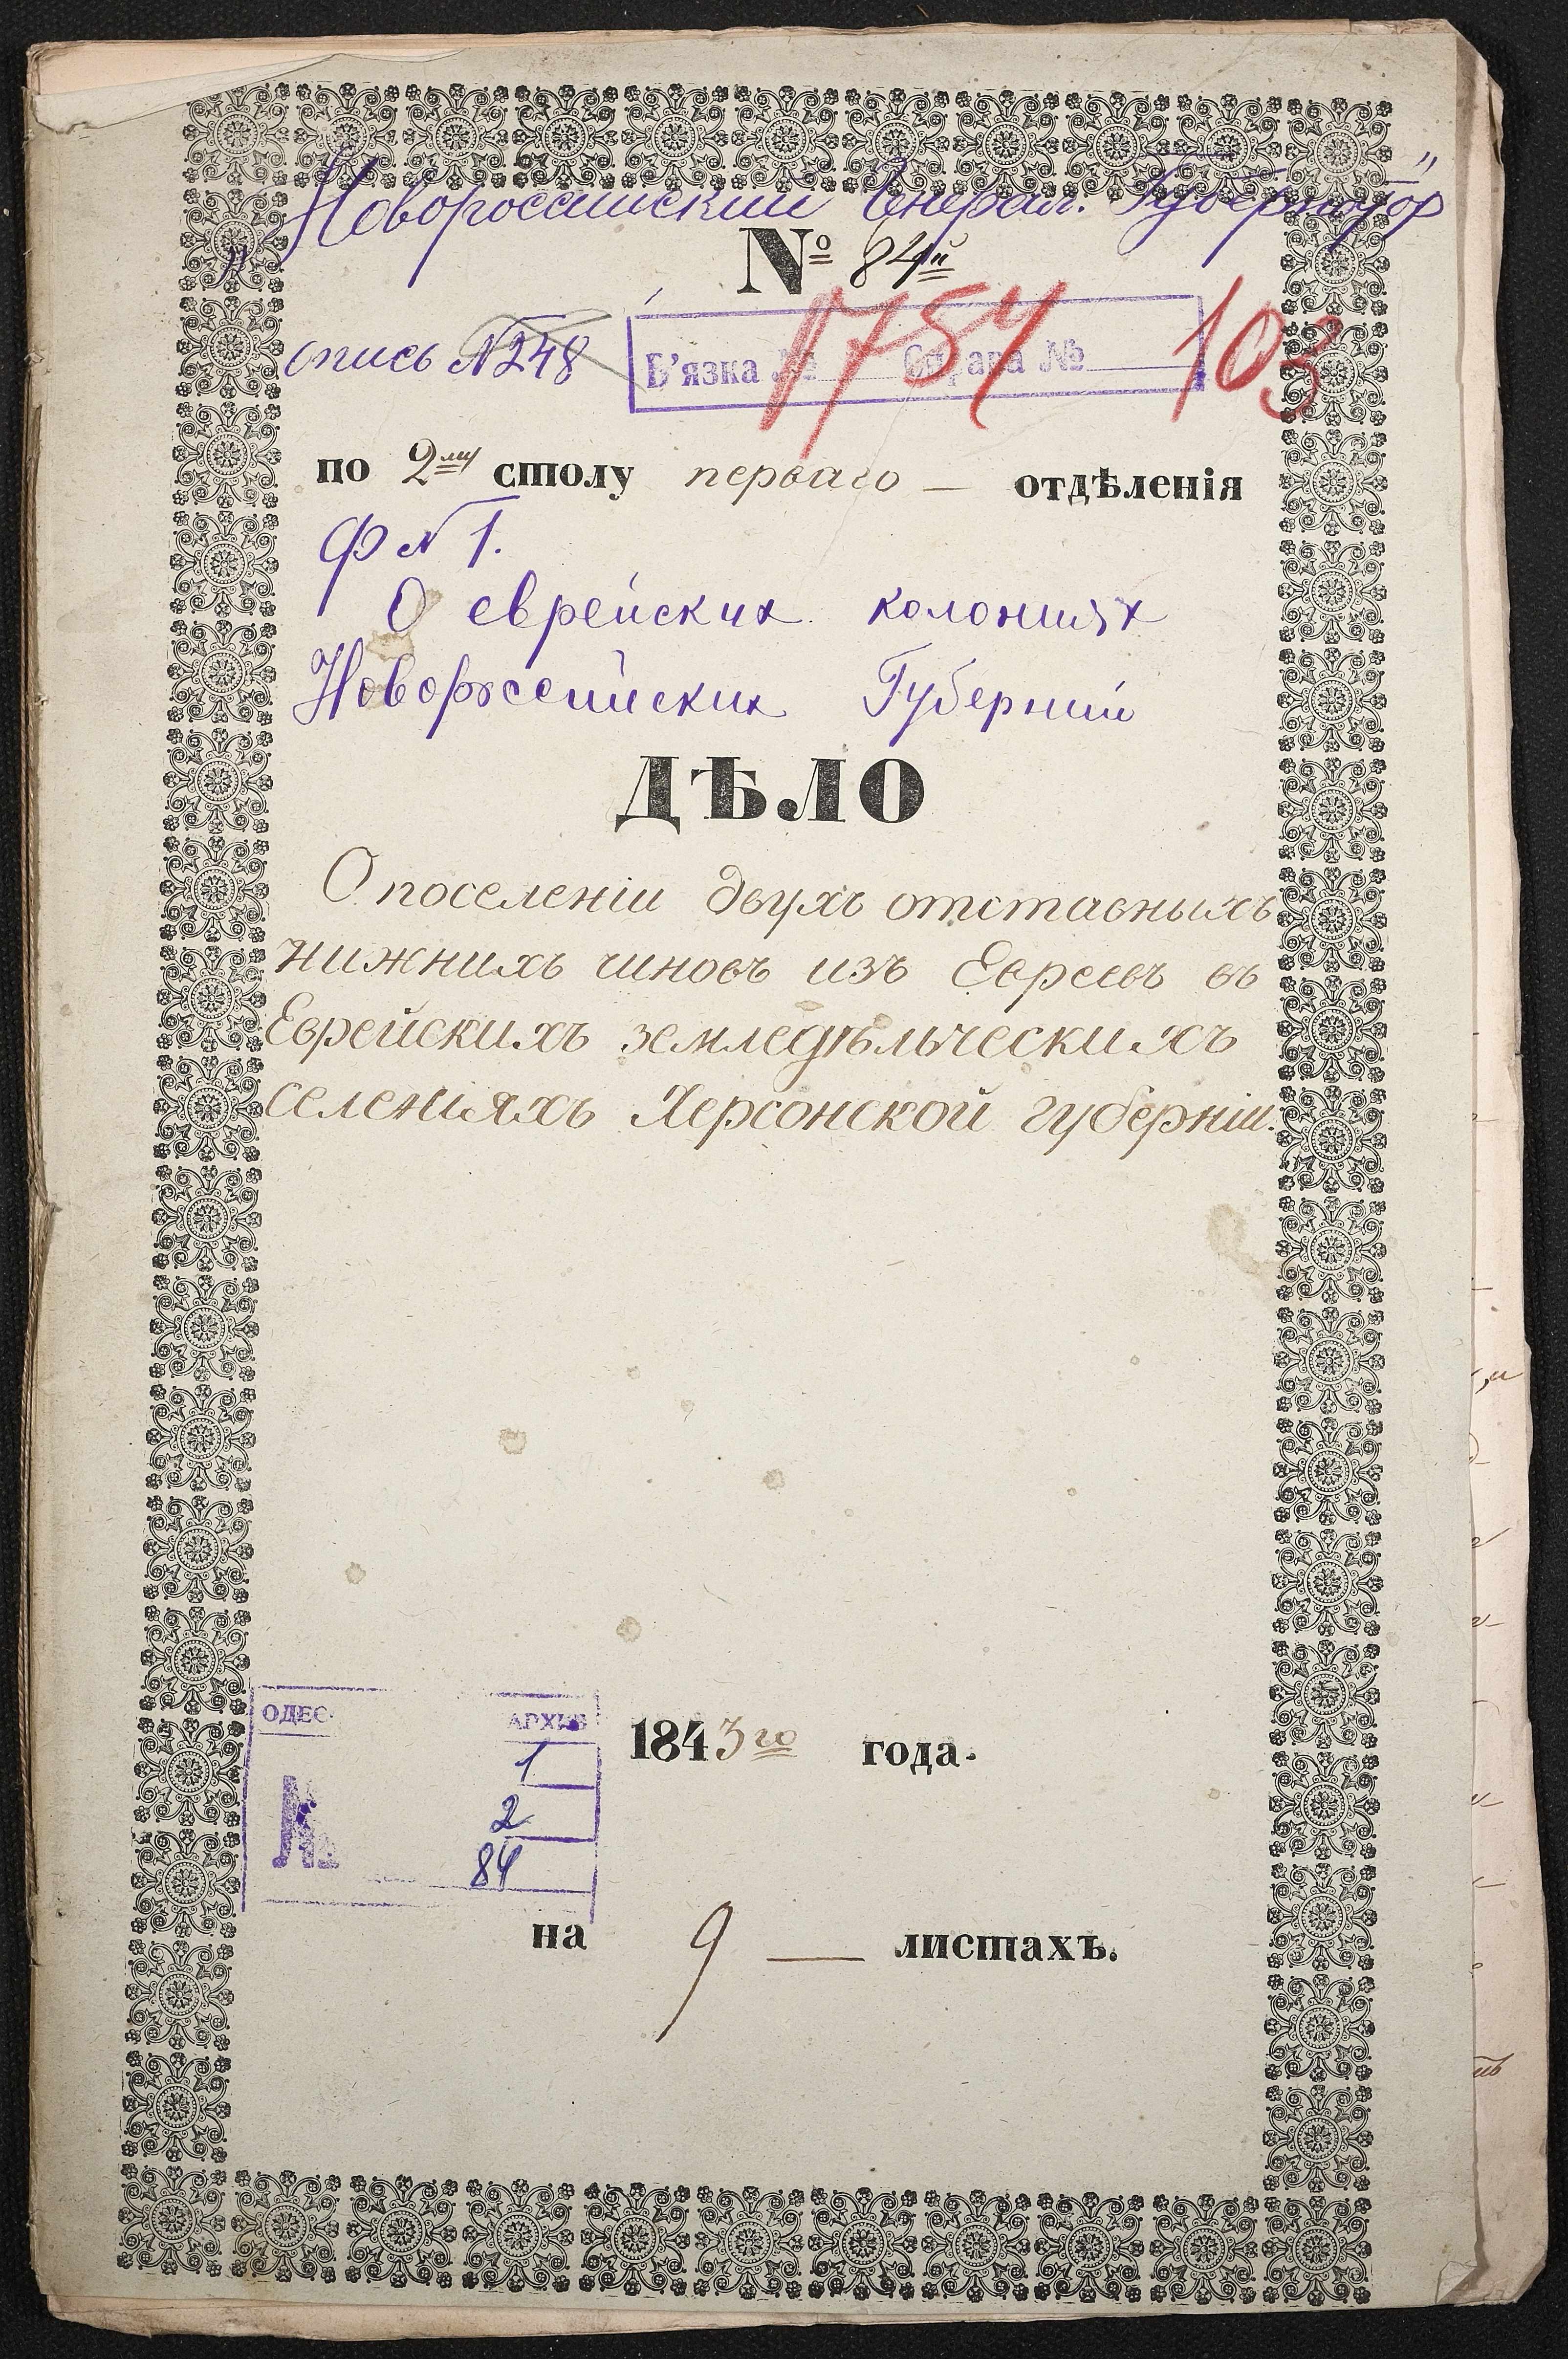 „Новороссийский Генерал. Губернатор“
№ 84й
опись №248
В'язка № Справа №
1754 103
по 2му столу перваго — отдѣленія
Ф № 1.
О еврейских колониях
Новороссийских Губерний
ДѢЛО
О поселеніи двухъ отставныхъ
нижнихъ чиновъ изъ Евреевъ въ
Еврейскихъ земледѣльческихъ
селеніяхъ Херсонской губерніи.
ОДЕС АРХИВ
1
№ 2
84
1843го года.
на 9 — листахъ.